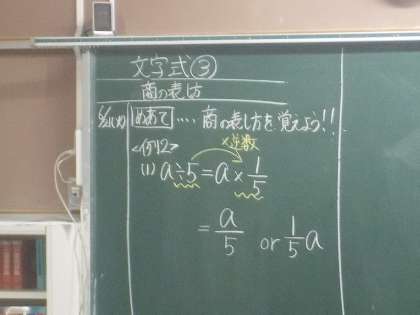 文字式③
商の表し方
めあて .... 商の表し方を覚えよう!!
<例2>
×逆数
(1) a÷5=a×1/5
=a/5 or 1/5a